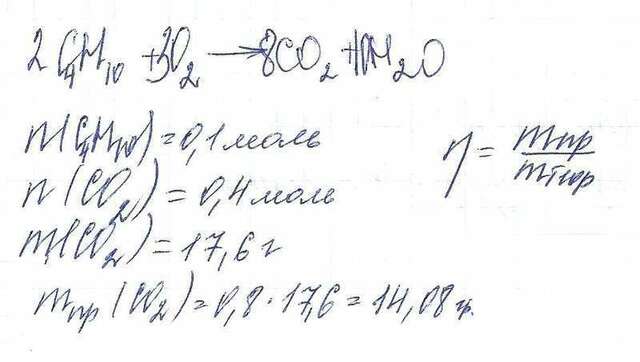 2C₄H₁₀ + 13O₂ → 8CO₂ + 10H₂O
n(C₄H₁₀) = 0,1 моль
n(CO₂) = 0,4 моль
m(CO₂) = 17,6 г
mпр(CO₂) = 0,8 · 17,6 = 14,08 гр.
η = mпр / mтеор